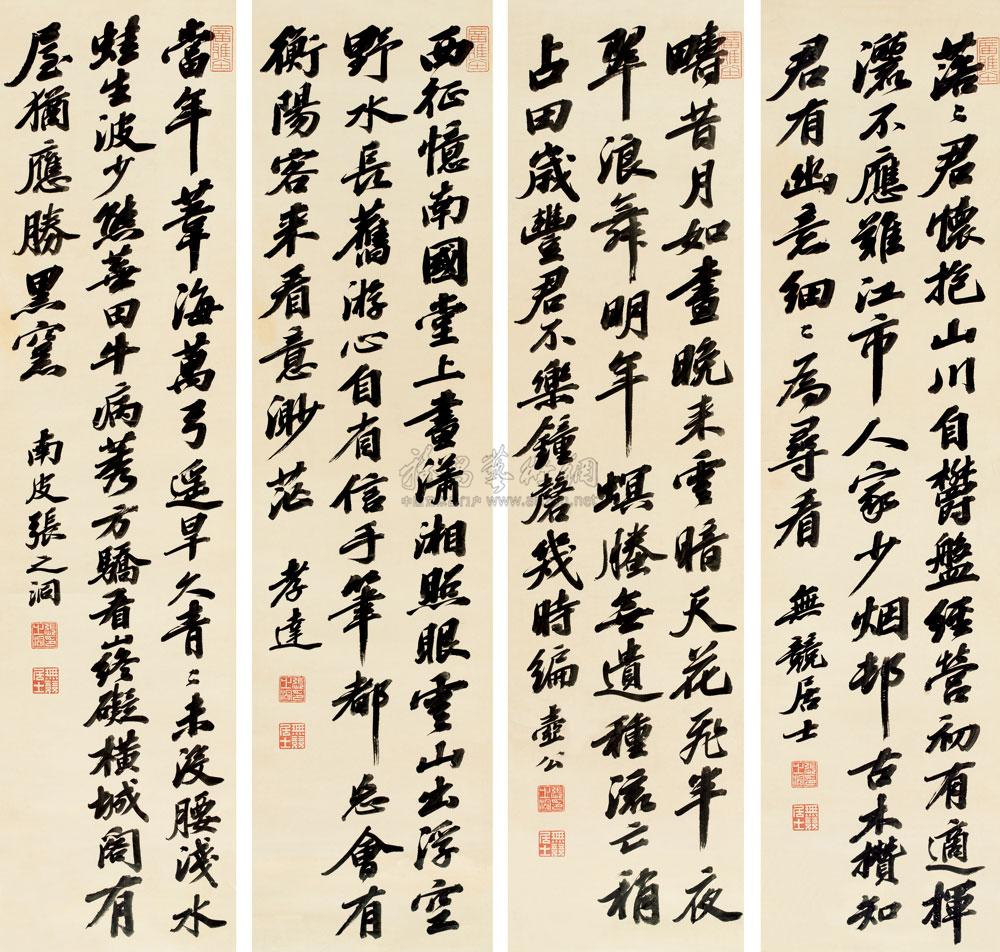 落〻君懷抱山川自欝盤經營初有適揮
灑不應難江市人家少烟邨古木攢知
君有幽意細〻為尋看 無競居士
疇昔月如晝晚来雲暗天花飛半夜
翠浪舞明年螟螣無遺種流亡稍
占田歲豐君不樂鐘磬幾時編 壺公
西征憶南國堂上畫瀟湘照眼雲山出浮空
野水長舊游心自省信手筆都忘會有
衡陽客来看意渺茫 孝達
當年葦海萬弓遥旱久青〻未没腰淺水
蛙生波少態蕪田牛病莠方驕看山終礙横城閣有
屋猶應勝黑窯 南皮張之洞
無競居士